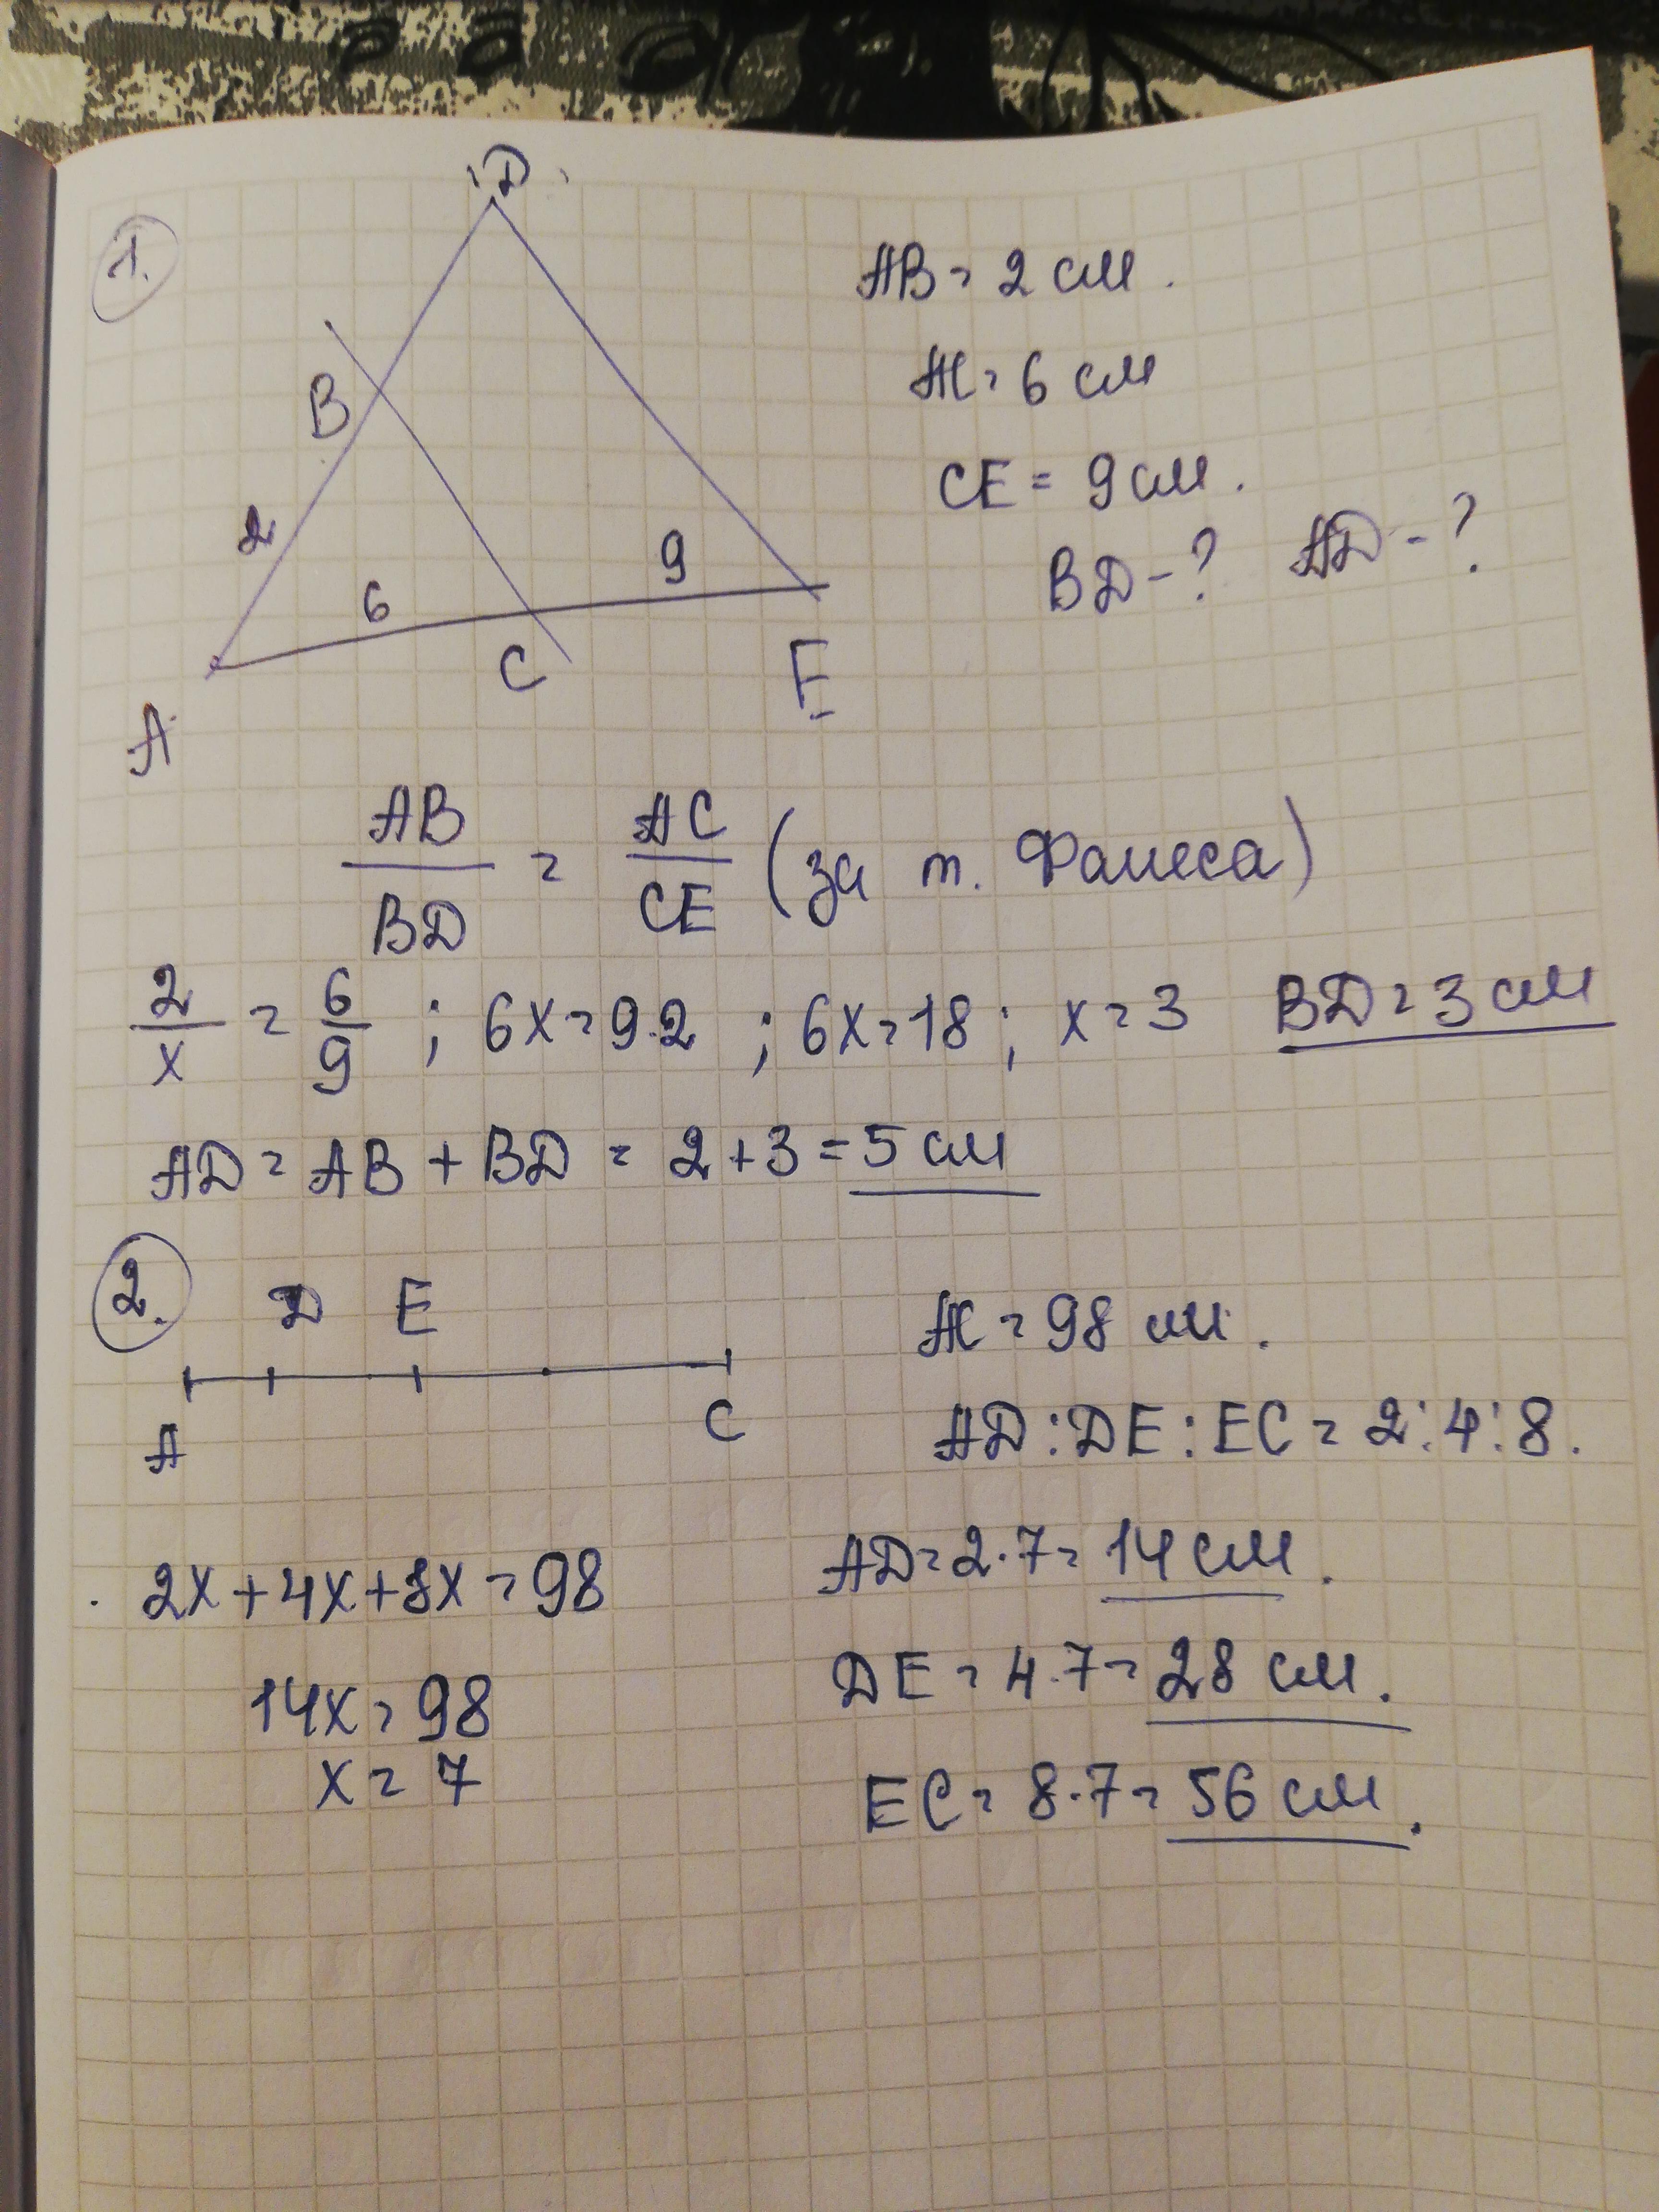 1.
D
AB = 2 см.
B
AC = 6 см
CE = 9 см.
2
9
BD - ? AD - ?
6
C
E
A
AB/BD = AC/CE (за т. Фалеса)
2/x = 6/9 ; 6x = 9·2 ; 6x = 18 ; x = 3 BD = 3 см
AD = AB + BD = 2 + 3 = 5 см
2.
D E
AC = 98 см.
A
C
AD : DE : EC = 2 : 4 : 8.
2x + 4x + 8x = 98
AD = 2·7 = 14 см.
14x = 98
DE = 4·7 = 28 см.
x = 7
EC = 8·7 = 56 см.